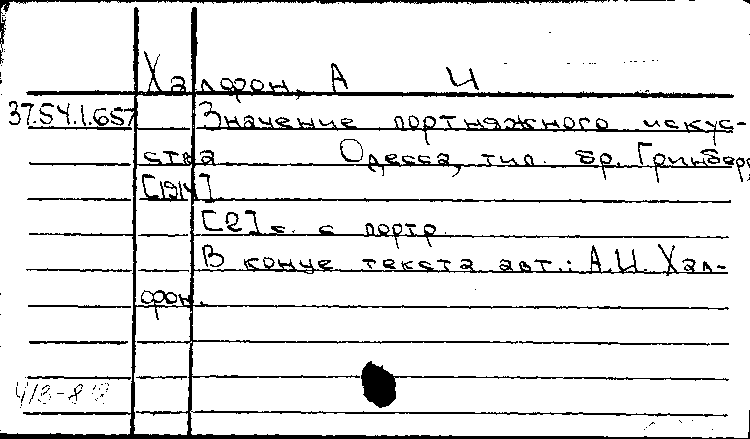 Халфон, А И
37.54.1.657 Значение портняжного искус-
ства Одесса, тип. бр. Гринберг,
[1914]
[2] с. с портр
В конце текста авт.: А.И. Хал-
фон.